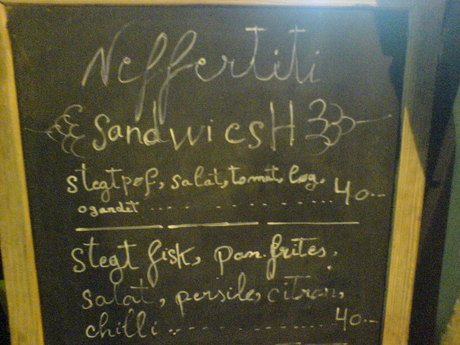 Neffertiti
SandwicsH
stegt pof, salat, tomat, log.
ogandet .................. 40--
stegt fisk, pan.frites.
salat, persile, citron,
chilli .................. 40--